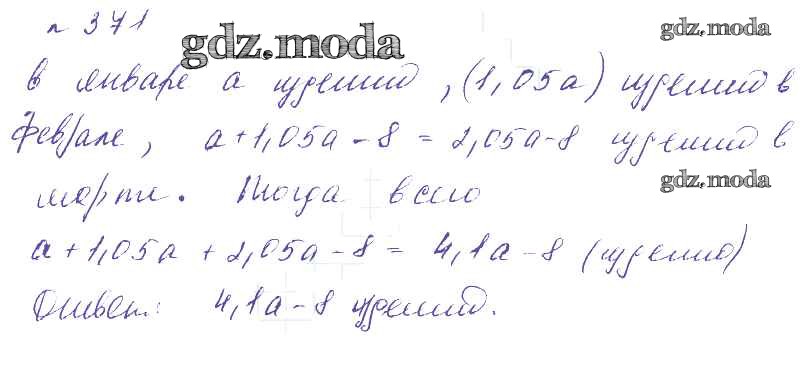 № 371
gdz.moda
gdz.moda
В январе a изделий, (1,05a) изделий в
феврале, a+1,05a-8=2,05a-8 изделий в
марте. Тогда всего
gdz.moda
a+1,05a+2,05a-8=4,1a-8 (изделий)
Ответ: 4,1a-8 изделий.